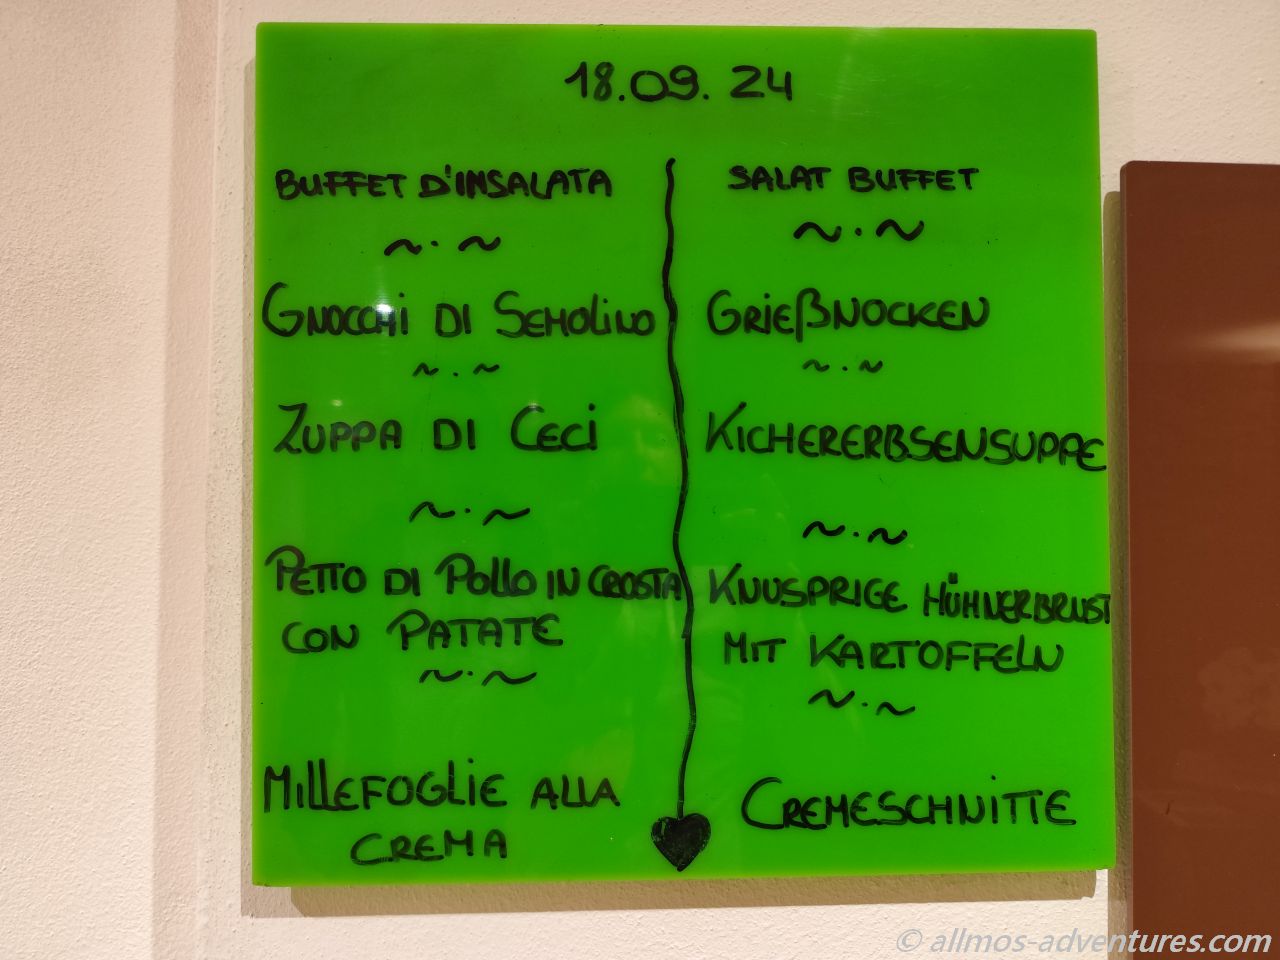 18.09.24
BUFFET D'INSALATA
~.~
GNOCCHI DI SEMOLINO
~.~
ZUPPA DI CECI
~.~
PETTO DI POLLO IN CROSTA
CON PATATE
~.~
MILLEFOGLIE ALLA
CREMA
SALAT BUFFET
~.~
GRIEßNOCKEN
~.~
KICHERERBSENSUPPE
~.~
KNUSPRIGE HÜHNERBRUST
MIT KARTOFFELN
~.~
CREMESCHNITTE
© allmos-adventures.com